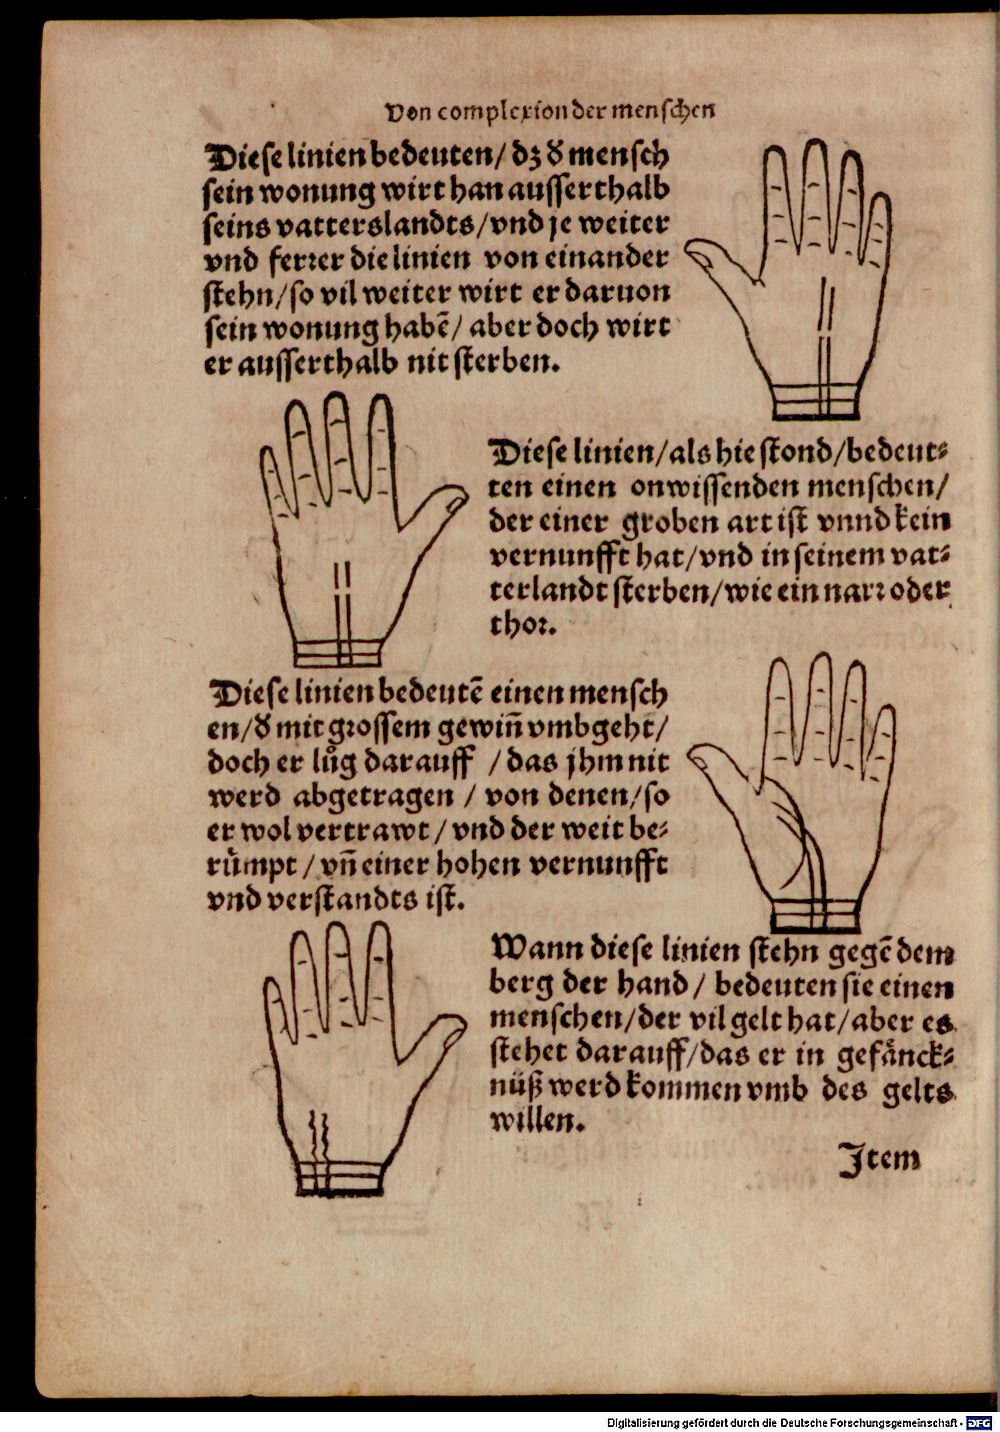 Von complexion der menschen
Diese linien bedeuten/ dz d mensch
sein wonung wirt han ausserthalb
seins vatterslandts/vnd je weiter
vnd ferrer die linien von einander
stehn/so vil weiter wirt er daruon
sein wonung habē/ aber doch wirt
er ausserthalb nit sterben.
Diese linien/als hie stond/bedeut⸗
ten einen onwissenden menschen/
der einer groben art ist vnnd kein
vernunfft hat/vnd in seinem vat⸗
terlandt sterben/wie ein narr oder
thor.
Diese linien bedeutē einen mensch
en/d mit grossem gewiñ vmbgeht/
doch er lůg darauff /das jhm nit
werd abgetragen / von denen/so
er wol vertrawt/ vnd der weit be⸗
rümpt/ vñ einer hohen vernunfft
vnd verstandts ist.
Wann diese linien stehn gegē dem
berg der hand/ bedeuten sie einen
menschen/der vil gelt hat/aber es
stehet darauff/das er in gefänck⸗
nüß werd kommen vmb des gelts
willen.
Item
Digitalisierung gefördert durch die Deutsche Forschungsgemeinschaft - DFG